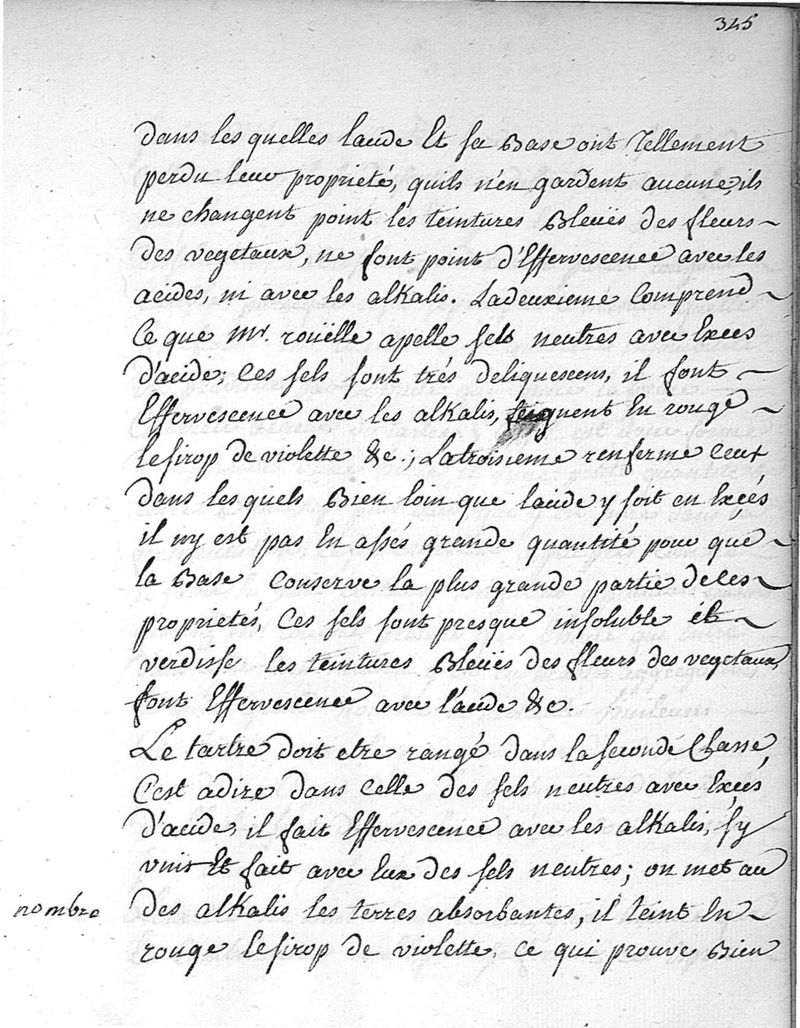 345
dans les quelles lacide Et sa Base ont Tellement
perdu leur proprieté, quils n'en gardent aucune, ils
ne changent point les teintures Bleües des fleurs
des vegetaux, ne font point d'Effervescence avec les
acides, ni avec les alkalis. La deuxieme Comprend
Ce que Mr. roüelle apelle sels neutres avec Exces
d'acide; Ces sels sont trés deliquescens, il font
Effervescence avec les alkalis, teignent En rouge
le sirop de violette &c.; La troisieme renferme Ceux
dans les quels Bien loin que lacide y soit en Excés
il n'y est pas En assés grande quantité pour que
la Base Conserve la plus grande partie de Ces
proprietés, Ces sels sont presque insoluble et
verdisse les teintures Bleües des fleurs des vegetaux,
font Effervescence avec l'acide &c.
Le tartre doit etre rangé dans la seconde Classe,
C'est adire dans Celle des sels neutres avec Excés
d'acide, il fait Effervescence avec les alkalis, s'y
unit Et fait avec Eux des sels neutres; on met au
nombre des alkalis les terres absorbantes, il teint En
rouge le sirop de violette, Ce qui prouve Bien